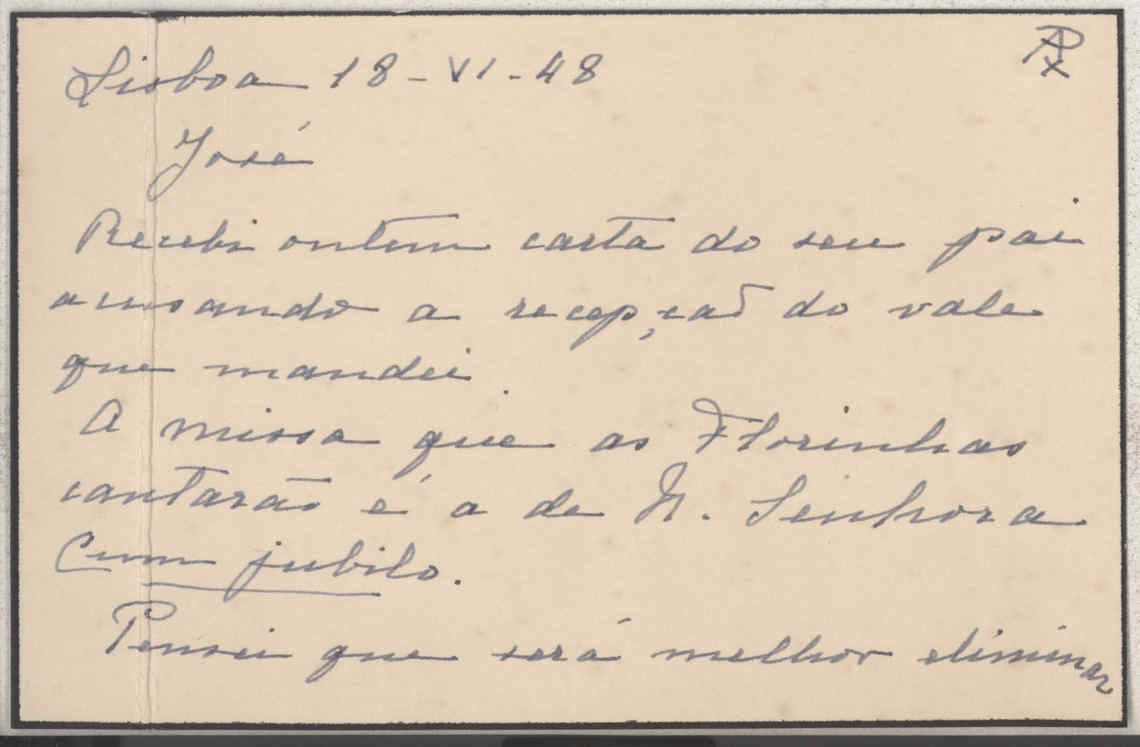 Lisboa 18-VI-48
José
Recebi ontem carta do seu pai
acusando a recepção do vale
que mandei.
A missa que as Florinhas
cantarão é a de N. Senhora
Cum jubilo.
Pensei que será melhor eliminar